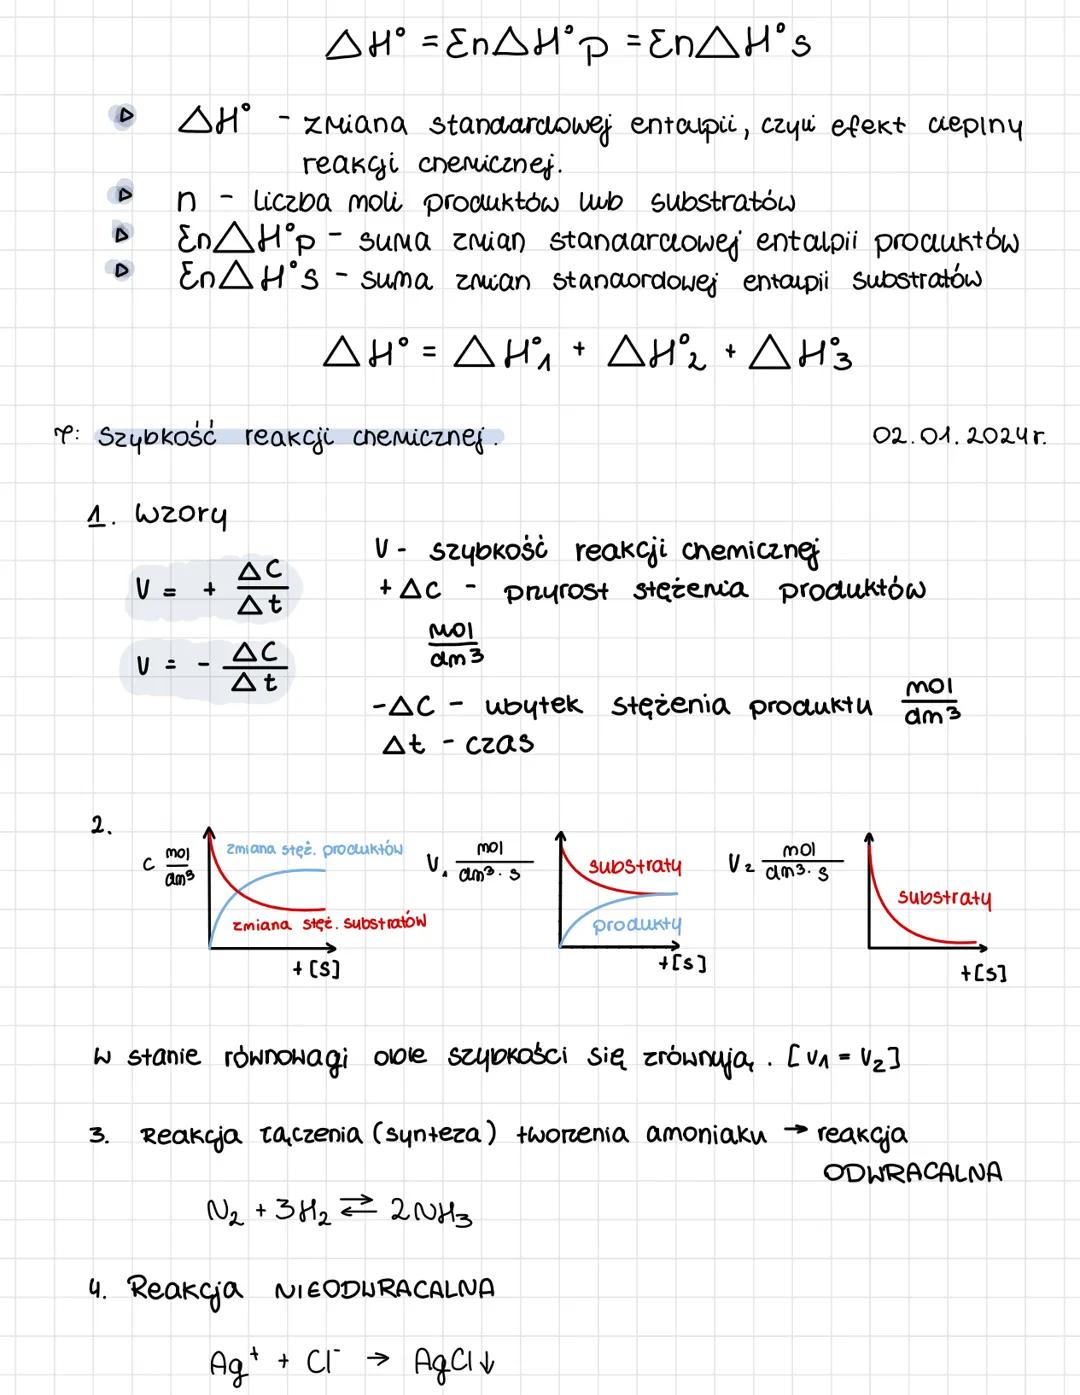 △H° = Ɛn△H°p = Ɛn△H°s
▷ △H° - zmiana standardowej entalpii, czyli efekt cieplny
reakcji chemicznej.
▷ n - liczba moli produktów lub substratów
▷ Ɛn△H°p - suma zmian standardowej entalpii produktów
▷ Ɛn△H°s - suma zmian standardowej entalpii substratów
△H° = △H°1 + △H°2 + △H°3
T: Szybkość reakcji chemicznej. 02.01.2024r.
1. Wzory
V - szybkość reakcji chemicznej
V = + ΔC/Δt
+ΔC - przyrost stężenia produktów
mol/dm3
V = - ΔC/Δt
-ΔC - ubytek stężenia produktu mol/dm3
Δt - czas
2.
C mol/dm3
zmiana stęż. produktów
zmiana stęż. substratów
t [s]
V1 mol/dm3·s
substraty
produkty
t[s]
V2 mol/dm3·s
substraty
t[s]
W stanie równowagi obie szybkości się zrównują. [V1 = V2]
3. Reakcja łączenia (synteza) tworzenia amoniaku → reakcja
ODWRACALNA
N2 + 3H2 ⇄ 2NH3
4. Reakcja NIEODWRACALNA
Ag+ + Cl- → AgCl↓